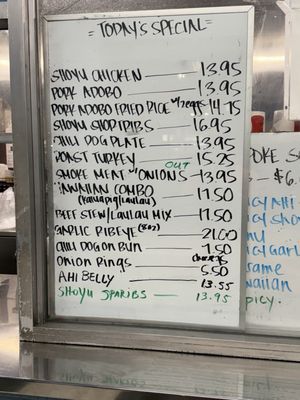 = TODAY'S SPECIAL =
SHOYU CHICKEN — 13.95
PORK ADOBO — 13.95
PORK ADOBO FRIED RICE w/2eggs - 14.75
SHOYU SHORTRIBS — 16.95
CHILI DOG PLATE — 13.95
ROAST TURKEY — 15.25
OUT
SMOKE MEAT w/ONIONS - 13.95
HAWAIIAN COMBO — 17.50
(Kalua pig/Laulau)
BEEF STEW/LAULAU MIX — 17.50
GARLIC RIBEYE — 21.00
CHILI DOG ON BUN — 7.50
ONION RINGS — 5.50
AHI BELLY — 13.55
SHOYU SPARIBS — 13.95
POKE
$6.